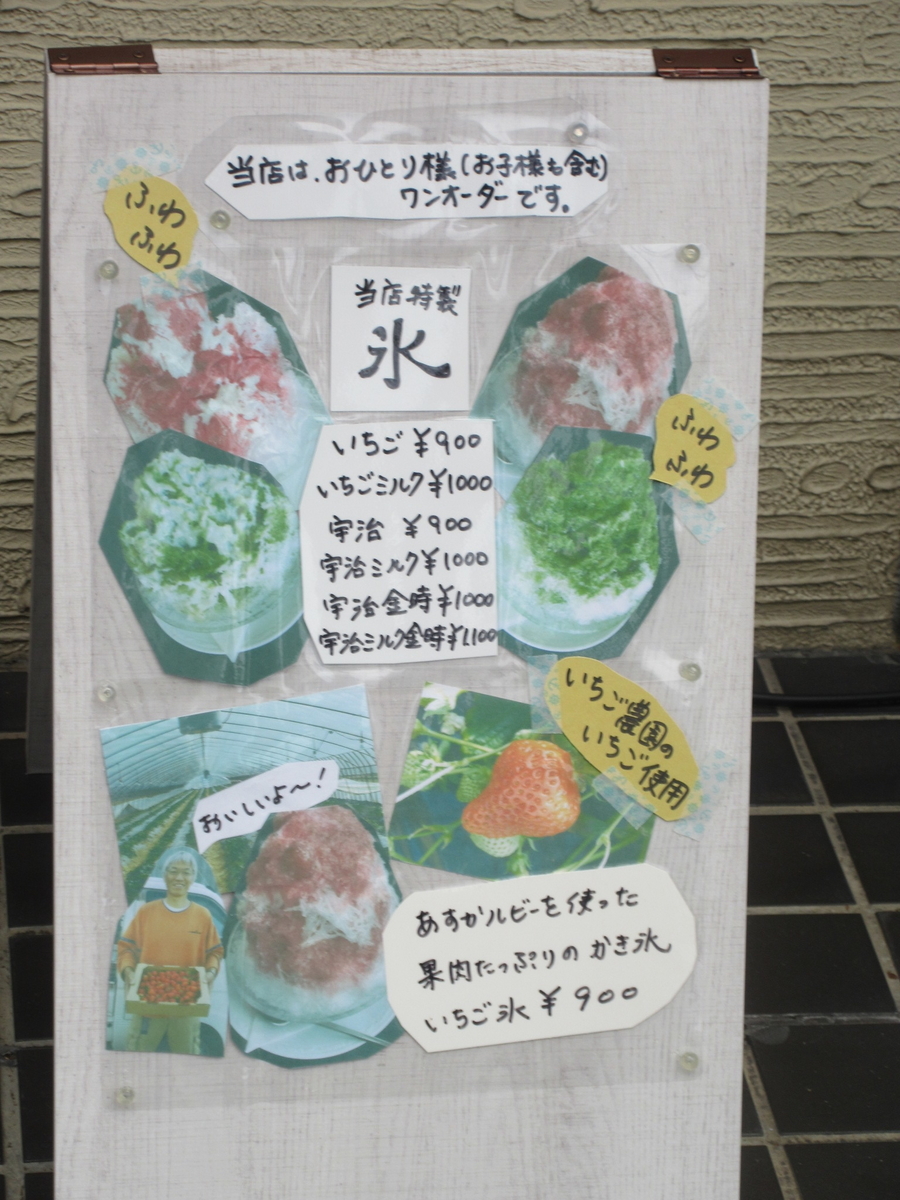 当店は、おひとり様(お子様も含む)
ワンオーダーです。
ふわ
ふわ
当店特製
氷
ふわ
ふわ
いちご ¥900
いちごミルク¥1000
宇治 ¥900
宇治ミルク¥1000
宇治金時¥1000
宇治ミルク金時¥1,100
いちご農園の
いちご使用
おいしいよ〜!
あすかルビーを使った
果肉たっぷりのかき氷
いちご氷¥900